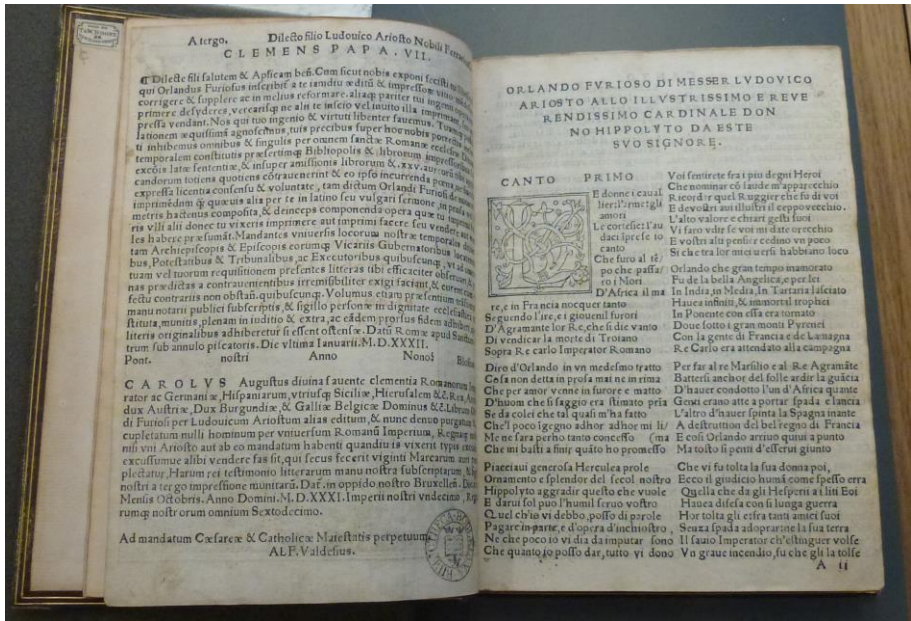 A tergo. Dilecto filio Ludouico Ariosto Nobili
CLEMENS PAPA. VII.
¶ Dilecte fili salutem & Aplicam beñ. Cum sicut nobis exponi fecisti tu
qui Orlandus Furiosus inscribit a te iamdiu æditū & impressum
corrigere & supplere ac in melius reformare. aliaq; pariter tui ingenii
primere desyderes, vercarisq; ne alii te inscio vel inuito illa imprimant
pressa vendant. Nos qui tuo ingenio & virtuti libenter fauemus. Tuam
lationem æquissimā agnoscimus, tuis precibus super hoc nobis porrectis
ti inhibemus omnibus & singulis per omnem sanctæ Romanæ ecclesiæ
temporalem constitutis præsertimq; Bibliopolis & librorum impressoribus
excōis latæ sententiæ, & insuper amissionis librorum & .xxv. auri
candorum totiens quotiens cōtrauenerint & eo ipso incurrenda pœna,
expressa licentia consensu & voluntate, tam dictum Orlandi Furiosi
imprimēdum q̄ quæuis alia per te in latino seu vulgari sermone, in prosa vel
metris hactenus composita, & deinceps componenda opera quæ tu
ris vlli alii donec tu vixeris imprimere aut imprimi facere seu vendere
les habere præsumāt. Mandantes vniuersis locorum nostræ temporalis
tam Archiepiscopis & Episcopis eorumq; Vicariis Gubernatoribus
bus, Potestatibus & Tribunalibus, ac Executoribus quibuscunq; vt ad
tuam vel tuorum requisitionem presentes litteras tibi efficaciter obseruari
nas prædictas a contrauenientibus irremisibiliter exigi faciant, & cur
fectu contrariis non obstañ. quibuscunq;. Volumus etiam præsentium
manu notarii publici subscriptis, & sigillo personæ in dignitate ecclesiastica
stituta, munitis, plenam in iuditio & extra, ac eādem prorsus fidem adhiberi
literis originalibus adhiberetur si essent ostensæ. Datū Romæ apud Sanctum
trum sub annulo piscatoris. Die vltima Ianuarii. M. D. XXXII.
Pont. nostri Anno Nonoṡ Blosius
CAROLVS Augustus diuina fauente clementia Romanorum
rator ac Germaniæ, Hispaniarum, vtriusq; Siciliæ, Hierusalem &c. Rex,
dux Austriæ, Dux Burgundiæ, & Galliæ Belgicæ Dominus &c. Librum
di Furiosi per Ludouicum Ariostum alias editum, & nunc denuo purgatum
cupletatum nulli hominum per vniuersum Romanū Imperium, Regnaq;
nisi vni Ariosto aut ab eo mandatum habenti quandiu is vixerit typis
excussumue alibi vendere fas sit, qui secus fecerit viginti Marcarum auri
plectatur, Harum rei testimonio litterarum manu nostra subscriptarum, &
nostri a tergo impressione munitarū. Dat. in oppido nostro Bruxelleñ. Die
Mensis Octobris. Anno Domini. M. D. XXXI. Imperii nostri vndecimo,
rumq; nostrorum omnium Sextodecimo.
Ad mandatum Cæsareæ & Catholicæ Maiestatis perpetuum
ALF. Valdesius.
ORLANDO FVRIOSO DI MESSER LVDOVICO
ARIOSTO ALLO ILLVSTRISSIMO E REVE
RENDISSIMO CARDINALE DON
NO HIPPOLYTO DA ESTE
SVO SIGNORE.
CANTO PRIMO
E donne i caual
lieri l'arme gli
amori
Le cortesie l'au
daci īprese io
canto
Che furo al tē/
po che passa/
ro i Mori
D'Africa il ma
re, e in Francia nocquer tanto
Seguendo l'ire, e i giouenil furori
D'Agramante lor Re, che si die vanto
Di vendicar la morte di Troiano
Sopra Re carlo Imperator Romano
Diro d'Orlando in vn medesmo tratto
Cosa non detta in prosa mai ne in rima
Che per amor venne in furore e matto
D'huom che si saggio era stimato pria
Se da colei che tal quasi m'ha fatto
Che'l poco īgegno adhor adhor mi li/
Me ne sara perho tanto concesso (ma
Che mi basti a finir quāto ho promesso
Piacciaui generosa Herculea prole
Ornamento e splendor del secol nostro
Hippolyto aggradir questo che vuole
E darui sol puo l'humil seruo vostro
Quel ch'io vi debbo, posso di parole
Pagare in parte, e d'opera d'inchiostro
Ne che poco io vi dia da imputar sono
Che quanto io posso dar, tutto vi dono
Voi sentirete fra i piu degni Heroi
Che nominar cō laude m'apparecchio
Ricordar quel Ruggier che fu di voi
E de vostri aui illustri il ceppo vecchio.
L'alto valore e chiari gesti suoi
Vi faro vdir se voi mi date orecchio
E vostri alti pensier cedino vn poco
Si che tra lor miei versi habbiano loco
Orlando che gran tempo inamorato
Fu de la bella Angelica, e per lei
In India, in Media, In Tartaria lasciato
Hauea infiniti, & immortal trophei
In Ponente con essa era tornato
Doue sotto i gran monti Pyrenei
Con la gente di Francia e de Lamagna
Re Carlo era attendato alla campagna
Per far al re Marsilio e al Re Agramāte
Battersi anchor del folle ardir la guācia
D'hauer condotto l'un d'Africa quante
Genti erano atte a portar spada e lancia
L'altro d'hauer spinta la Spagna inante
A destruttion del bel regno di Francia
E cosi Orlando arriuo quiui a punto
Ma tosto si penti d'esserui giunto
Che vi fu tolta la sua donna poi,
Ecco il giudicio humā come spesso erra
Quella che da gli Hesperii a i liti Eoi
Hauea difesa con si lunga guerra
Hor tolta gli è fra tanti amici suoi
Senza spada adoprar ne la sua terra
Il sauio Imperator ch'estinguer volse
Vn graue incendio, fu che gli la tolse
A ii